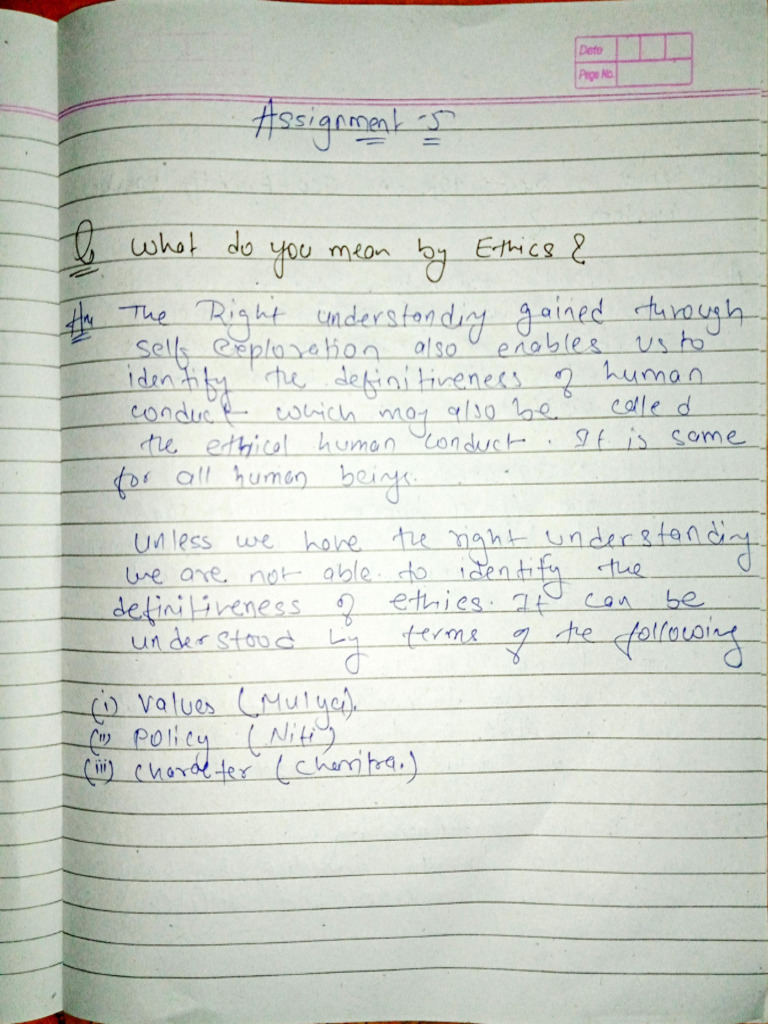 Date
Page No.
Assignment - 5
Q What do you mean by Ethics ?
Ans The Right understanding gained through
self exploration also enables us to
identify the definitiveness of human
conduct which may also be called
the ethical human conduct. It is same
for all human beings.
unless we have the right understanding
we are not able to identify the
definitiveness of ethics. It can be
understood by terms of the following
(i) values (Mulya).
(ii) policy (Niti)
(iii) character (Charitra.)